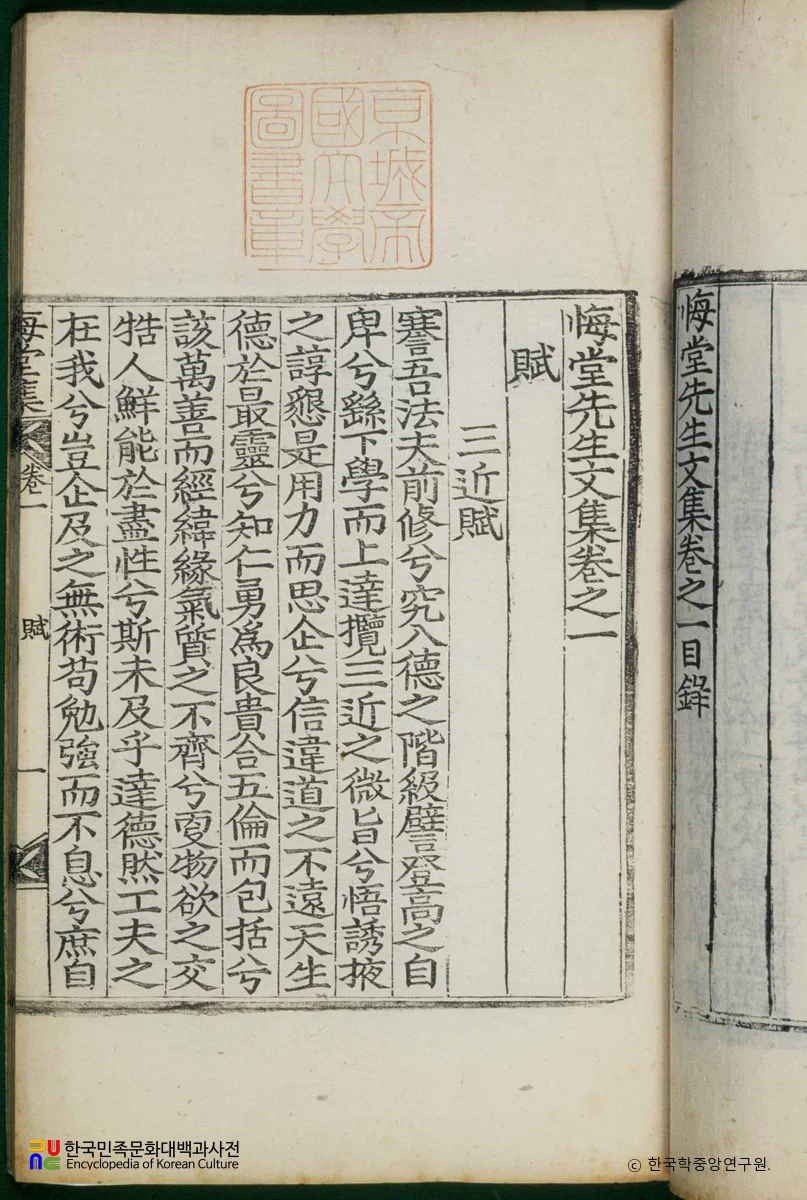 京城帝
國大學
圖書章
悔堂先生文集卷之一目錄
悔堂先生文集卷之一
賦
三近賦
謇吾法夫前修兮究入德之階級譬登高之自
卑兮繇下學而上達攬三近之微旨兮悟誘掖
之諄懇是用力而思企兮信違道之不遠天生
德於最靈兮知仁勇爲良貴合五倫而包括兮
該萬善而經緯緣氣質之不齊兮更物欲之交
牿人鮮能於盡性兮斯未及乎達德然工夫之
在我兮豈企及之無術苟勉強而不息兮庶自
悔堂集
卷一
賦
一
한국민족문화대백과사전
Encyclopedia of Korean Culture
ⓒ 한국학중앙연구원.